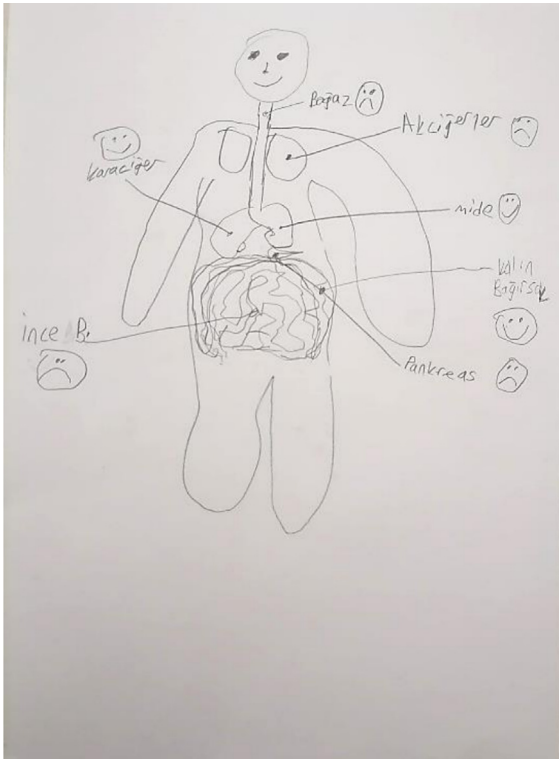 Bağaz
Akciğerler
karaciğer
mide
kalın
Bağırsak
ince B.
Pankreas